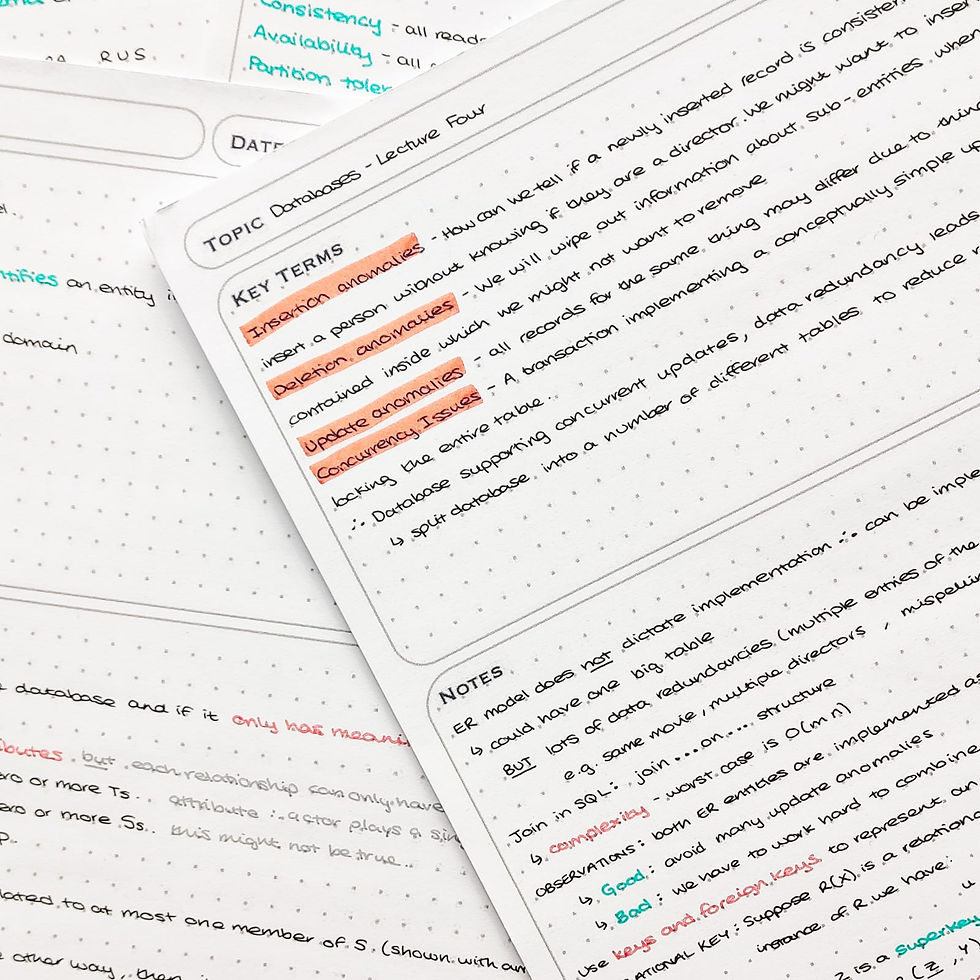 Consistency - all reads
Availability - all
Partition toler
RUS.
DATE
ntifies an entity
domain
database and if it only has meani
ibutes but each relationship can only have
ero or more Ts.. attribute ∴ actor plays a sin
ero or more Ss.. this might not be true...
lated to at most one member of S. (shown with an
other way, then i
TOPIC Databases - Lecture Four
KEY TERMS
Insertion anomalies - How can we tell if a newly inserted record is consisten
insert a person without knowing if they are a director. We might want to inser
Deletion anomalies - We will wipe out information about sub-entities when
contained inside which we might not want to remove
Update anomalies - all records for the same thing may differ due to thin
Concurrency Issues - A transaction implementing a conceptually simple up
locking the entire table.
∴ Database supporting concurrent updates, data redundancy leads
↳ split database into a number of different tables to reduce r
NOTES
ER model does not dictate implementation ∴ can be imple
↳ could have one big table
BUT lots of data redundancies (multiple entries of the
e.g. same movie, multiple directors, mispellin
Join in SQL: join ... on ... structure
↳ complexity - worst case is O(mn)
OBSERVATIONS: both ER entities are implemented as
↳ Good: avoid many update anomalies
↳ Bad: we have to work hard to combine
Use keys and foreign keys to represent an
ATIONAL KEY: Suppose R(X) is a relationa
instance of R we have:
Z is a superkey
(Z, Y